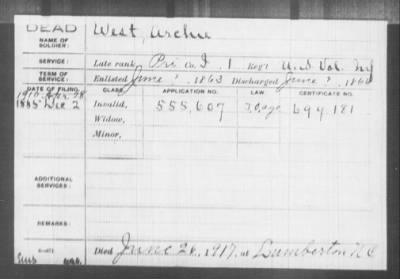 DEAD
NAME OF SOLDIER: West, Archie
SERVICE: Late rank, Pri Co. I, 1 Reg't U.S. Vol. Inf
TERM OF SERVICE: Enlisted June ?, 1863 Discharged June ?, 186
DATE OF FILING. CLASS. APPLICATION NO. LAW. CERTIFICATE NO.
1910 Apr. 28
1885 Dec 2 Invalid, 555,607 699,181
Widow,
Minor,
ADDITIONAL SERVICES:
REMARKS:
Died June 26, 1917, at Lumberton N.C.